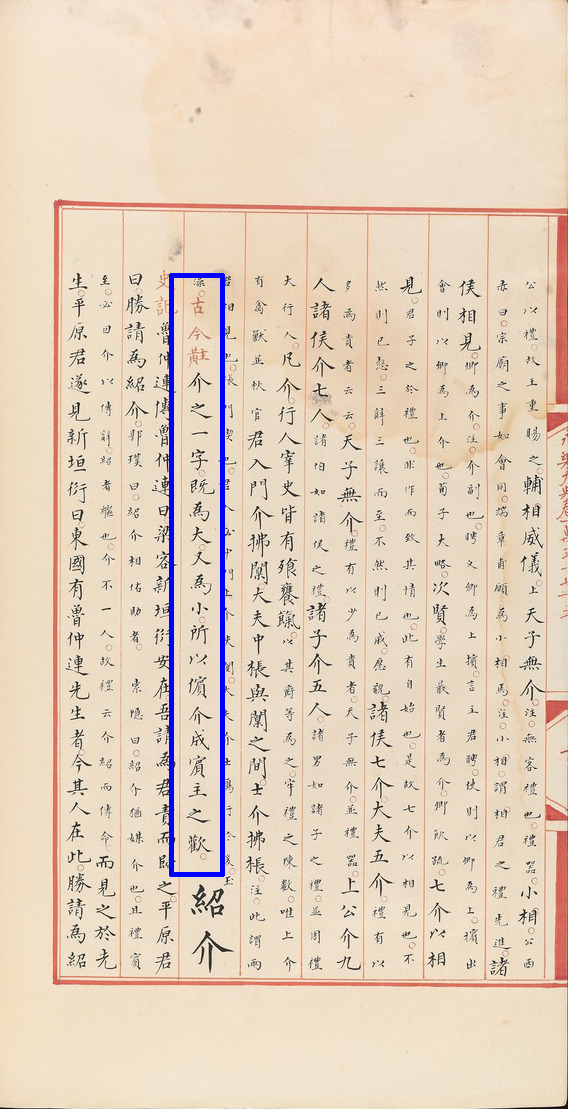 公以禮。故王重賜之。輔相威儀。上天子無介。注。無客禮也。禮器。小相。公西
赤曰。宗廟之事如會同。端章甫願為小相焉。注。小相。謂相君之禮先進。諸
侯相見。卿為介。注。介副也。聘义卿為上擯。言主君聘。使則以卿為上。擯出
會則以卿為上介也。荀子大略。次賢。學生最賢者為介。卿飲疏。七介以相
見。君子之於禮也。非作而致其情也。此有自始也。是故七介以相見也。不
然則已愨。三辭三讓而至。不然則已戚。愿諸侯七介大夫五介。禮有以
多為貴者云云。天子無介。禮有以少為貴者。天子無介。並禮器。上公介九
人諸侯介七人。諸伯如諸侯之禮。諸子介五人。諸男如諸子之禮。並周禮
大行人。凡介。行人宰史皆有飱饔餼。以其爵等為之。牢禮之陳數。唯上介
有禽獸並秋官。君入門介拂闑大夫中棖與闑之間。士介拂棖。注。此謂兩
君相見也。棖。門楔也。君入必中門上介夾闑。大夫介士鴈行於後。玉
藻。古今註介之一字。既為大。又為小。所以儐介成賓主之歡。紹介
史記魯仲連傳魯仲連曰梁客新垣衍安在吾請為君責而歸之。平原君
曰。勝請為紹介。郭璞曰。紹介相佑助者。索隱曰。紹介猶媒介也。且禮賓
至。必因介以傳辭。紹者繼也。介不一人。故禮云介紹而傳命。而見之於先
生。平原君遂見新垣衍曰。東國有魯仲連先生者。今其人在此。勝請為紹